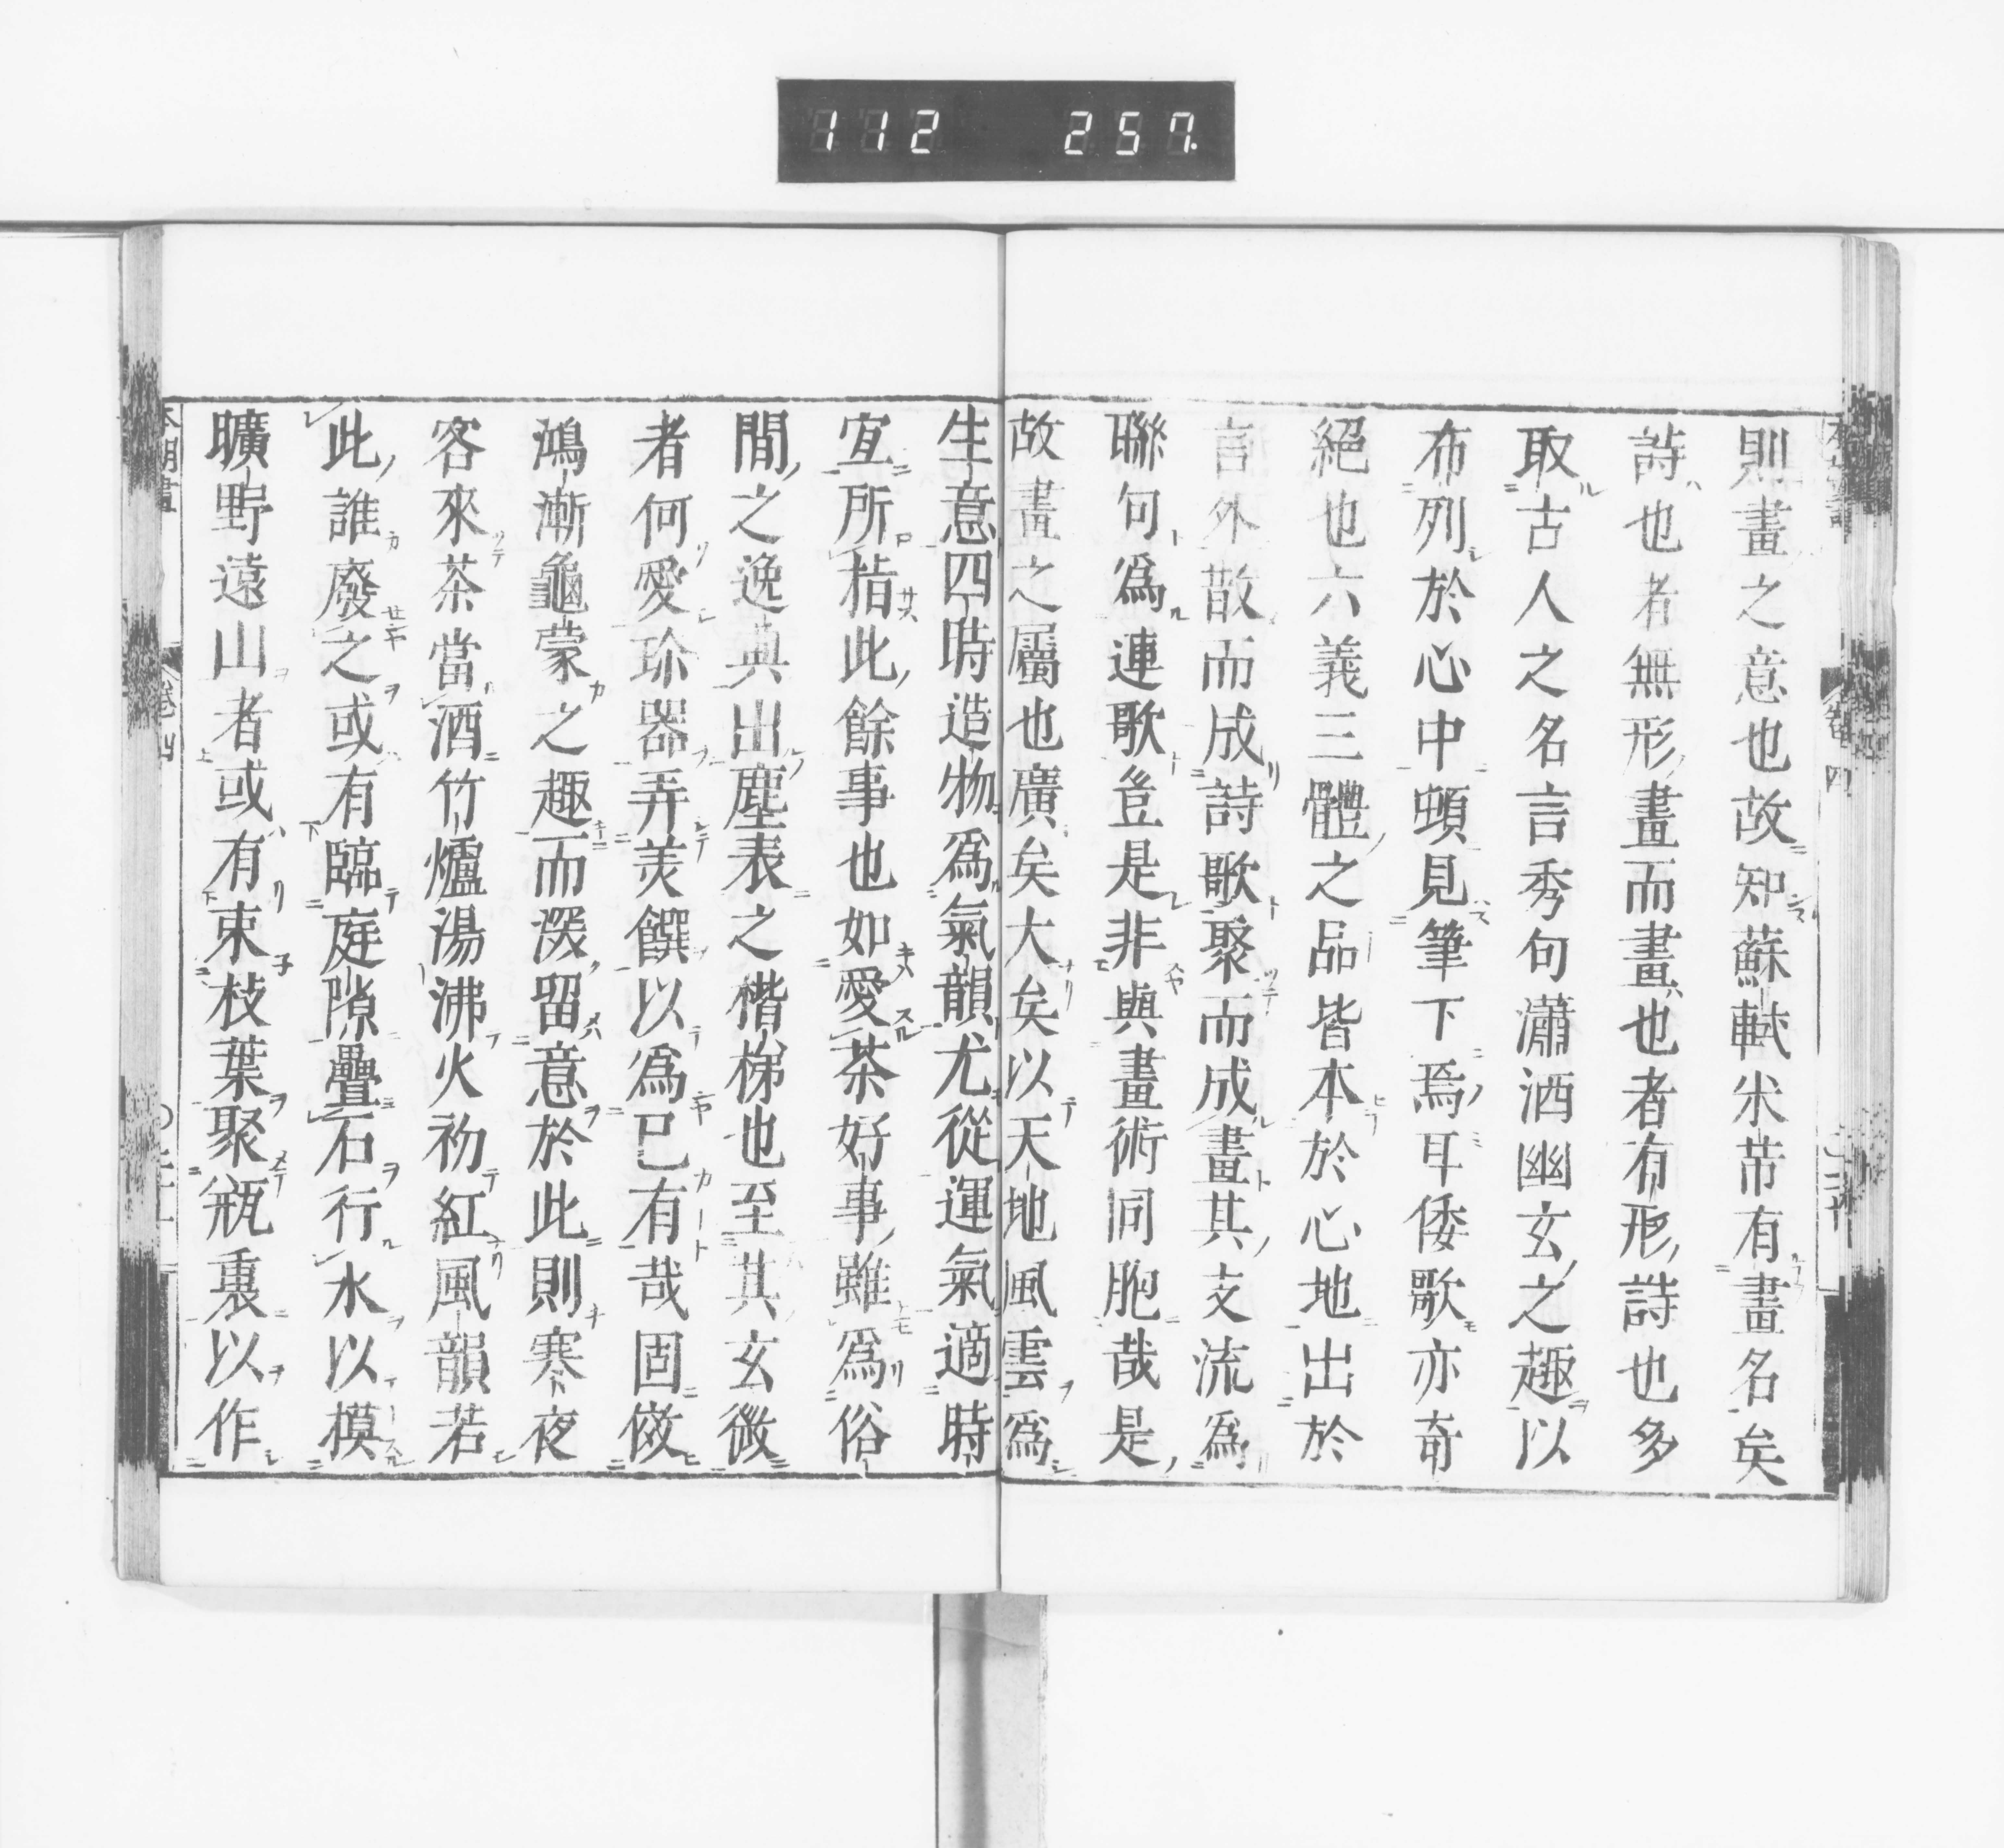 112 257.
則畫之意也故知蘇軾米芾有畫名矣
詩也者無形畫而畫也者有形詩也多
取古人之名言秀句瀟洒幽玄之趣以
布列於心中頓見筆下焉耳倭歌亦奇
絕也六義三體之品皆本於心地出於
言外散而成詩歌聚而成畫其支流爲
聯句爲連歌豈是非與畫術同胞哉是
故畫之屬也廣矣大矣以天地風雲爲
生意四時造物爲氣韻尤從運氣適時
宜所指此餘事也如愛茶好事雖爲俗
間之逸典出塵表之楷梯也至其玄微
者何愛珍器弄美饌以爲已有哉固傚
鴻漸龜蒙之趣而深留意於此則寒夜
客來茶當酒竹爐湯沸火初紅風韻若
此誰廢之或有臨庭隙疊石行水以摸
曠野遠山者或有束枝葉聚瓶裏以作
卷四